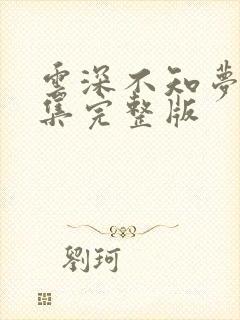 雲深不知夢
集完整版
劉珂